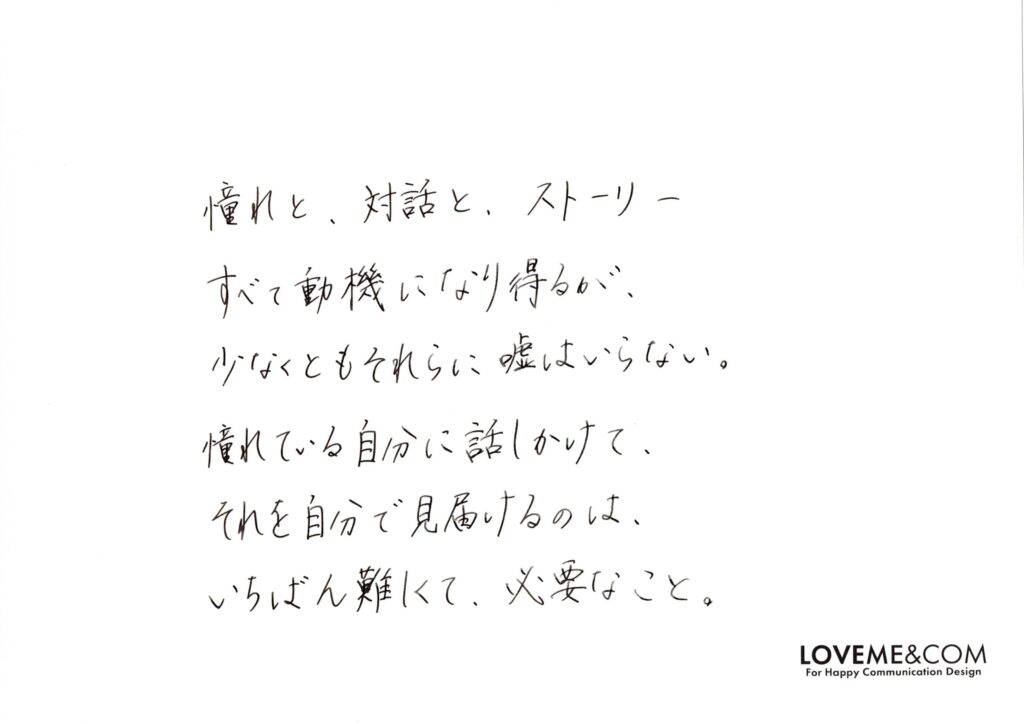 憧れと、対話と、ストーリー
すべて動機になり得るが、
少なくともそれらに嘘はいらない。
憧れている自分に話しかけて、
それを自分で見届けるのは、
いちばん難しくて、必要なこと。
LOVEME&COM
For Happy Communication Design